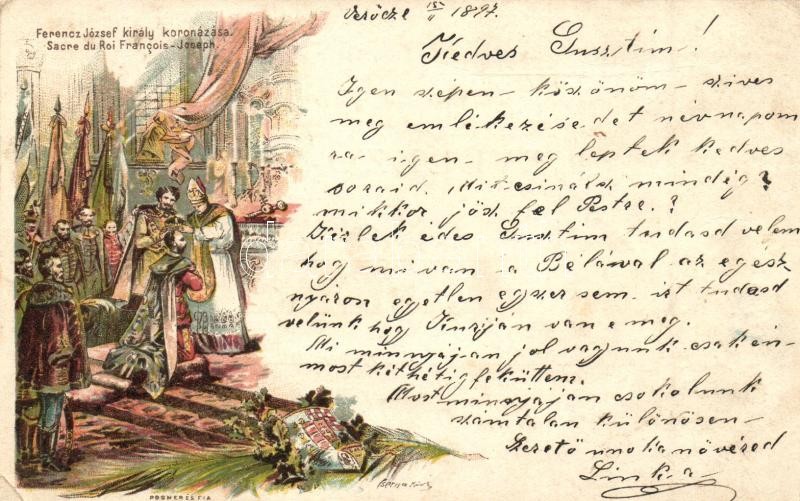 Ferencz József király koronázása.
Sacre du Roi François-Joseph.
Verőcze 15/II 1897.
Kedves Gusztim!
Igen szépen köszönöm szives
meg emlékezésedet névnapom
ra igen meg leptek kedves
soraid. Mit csinálsz mindég?
mikkor jösz fel Pestre?
Kérlek édes Gusztim tudasd velem
hogy mi van a Bélával az egész
nyáron egyetlen egyszer sem írt tudasd
velünk hogy van e meg.
Mi minnyájan jol vagyunk csak én
most két hétig feküttem.
Most minnyájan csokolunk
számtalan különösen
Szerető unokanővéred
Linka
POSNER ÉS FIA